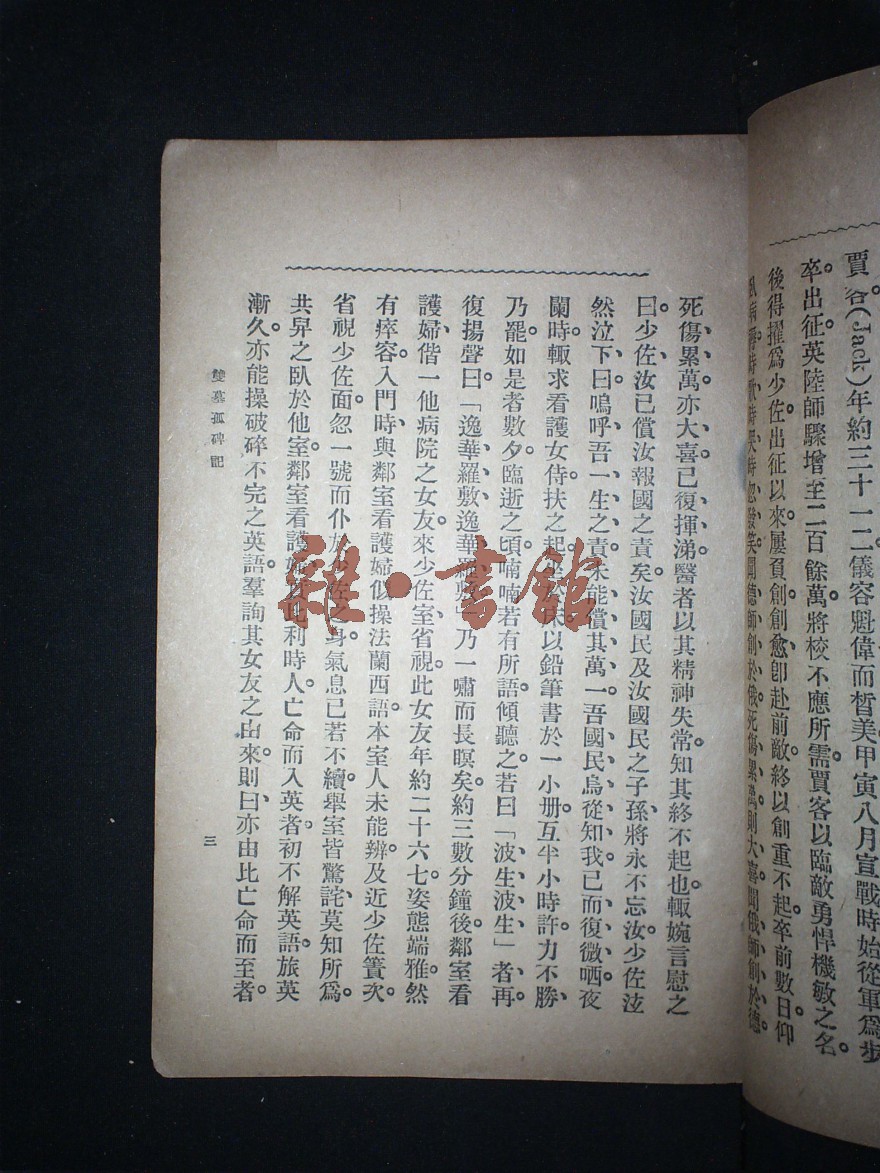 賈客(Jack)年約三十一二儀容魁偉而皙美甲寅八月宣戰時始從軍爲步
卒出征。英陸師驟增至二百餘萬將校不應所需。賈客以臨敵勇悍機敏之名。
後得擢爲少佐。出征以來屢負創創愈卽赴前敵。終以創重不起。卒前數日仰
臥病時歌時哭時忽發笑聞德師創於俄死傷累萬則大喜聞俄師創於德
死傷累萬亦大喜。已復揮涕。醫者以其精神失常知其終不起也輒婉言慰之
曰少佐汝已償汝報國之責矣。汝國民及汝國民之子孫將永不忘汝。少佐泣
然泣下曰嗚呼吾一生之責未能償其萬一。吾國民烏從知我。已而復微哂夜
闌時輒求看護女侍扶之起以鉛筆書於一小册互半小時許力不勝
乃罷如是者數夕。臨逝之頃喃喃若有所語傾聽之若曰「波生波生」者再
復揚聲曰「逸華羅敷逸華羅敷」乃一嘯而長暝矣。約三數分鐘後。鄰室看
護婦偕一他病院之女友來少佐室省視。此女友年約二十六七姿態端雅。然
有瘁容。入門時與鄰室看護婦似操法蘭西語。本室人未能辨。及近少佐簀次
省視少佐面。忽一號而仆於少佐之身氣息已若不續。舉室皆驚詫莫知所爲。
共舁之臥於他室。鄰室看護婦故比利時人。亡命而入英者。初不解英語。旅英
漸久。亦能操破碎不完之英語。羣詢其女友之由來。則曰亦由比亡命而至者。
雙墓孤碑記
三
雜·書館